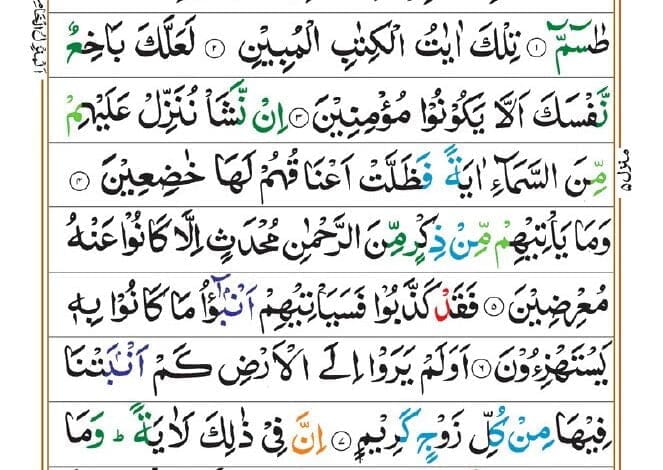 طٰسٓمّٓ ۝۱ تِلْكَ اٰيٰتُ الْكِتٰبِ الْمُبِيْنِ ۝۲ لَعَلَّكَ بَاخِعٌ
نَّفْسَكَ اَلَّا يَكُوْنُوْا مُؤْمِنِيْنَ ۝۳ اِنْ نَّشَاْ نُنَزِّلْ عَلَيْهِمْ
مِّنَ السَّمَآءِ اٰيَةً فَظَلَّتْ اَعْنَاقُهُمْ لَهَا خٰضِعِيْنَ ۝۴
وَمَا يَاْتِيْهِمْ مِّنْ ذِكْرٍ مِّنَ الرَّحْمٰنِ مُحْدَثٍ اِلَّا كَانُوْا عَنْهُ
مُعْرِضِيْنَ ۝۵ فَقَدْ كَذَّبُوْا فَسَيَاْتِيْهِمْ اَنْۢبٰٓؤُا مَا كَانُوْا بِهٖ
يَسْتَهْزِءُوْنَ ۝۶ اَوَلَمْ يَرَوْا اِلَى الْاَرْضِ كَمْ اَنْۢبَتْنَا
فِيْهَا مِنْ كُلِّ زَوْجٍ كَرِيْمٍ ۝۷ اِنَّ فِيْ ذٰلِكَ لَاٰيَةً ؕ وَمَا
منزل ۵